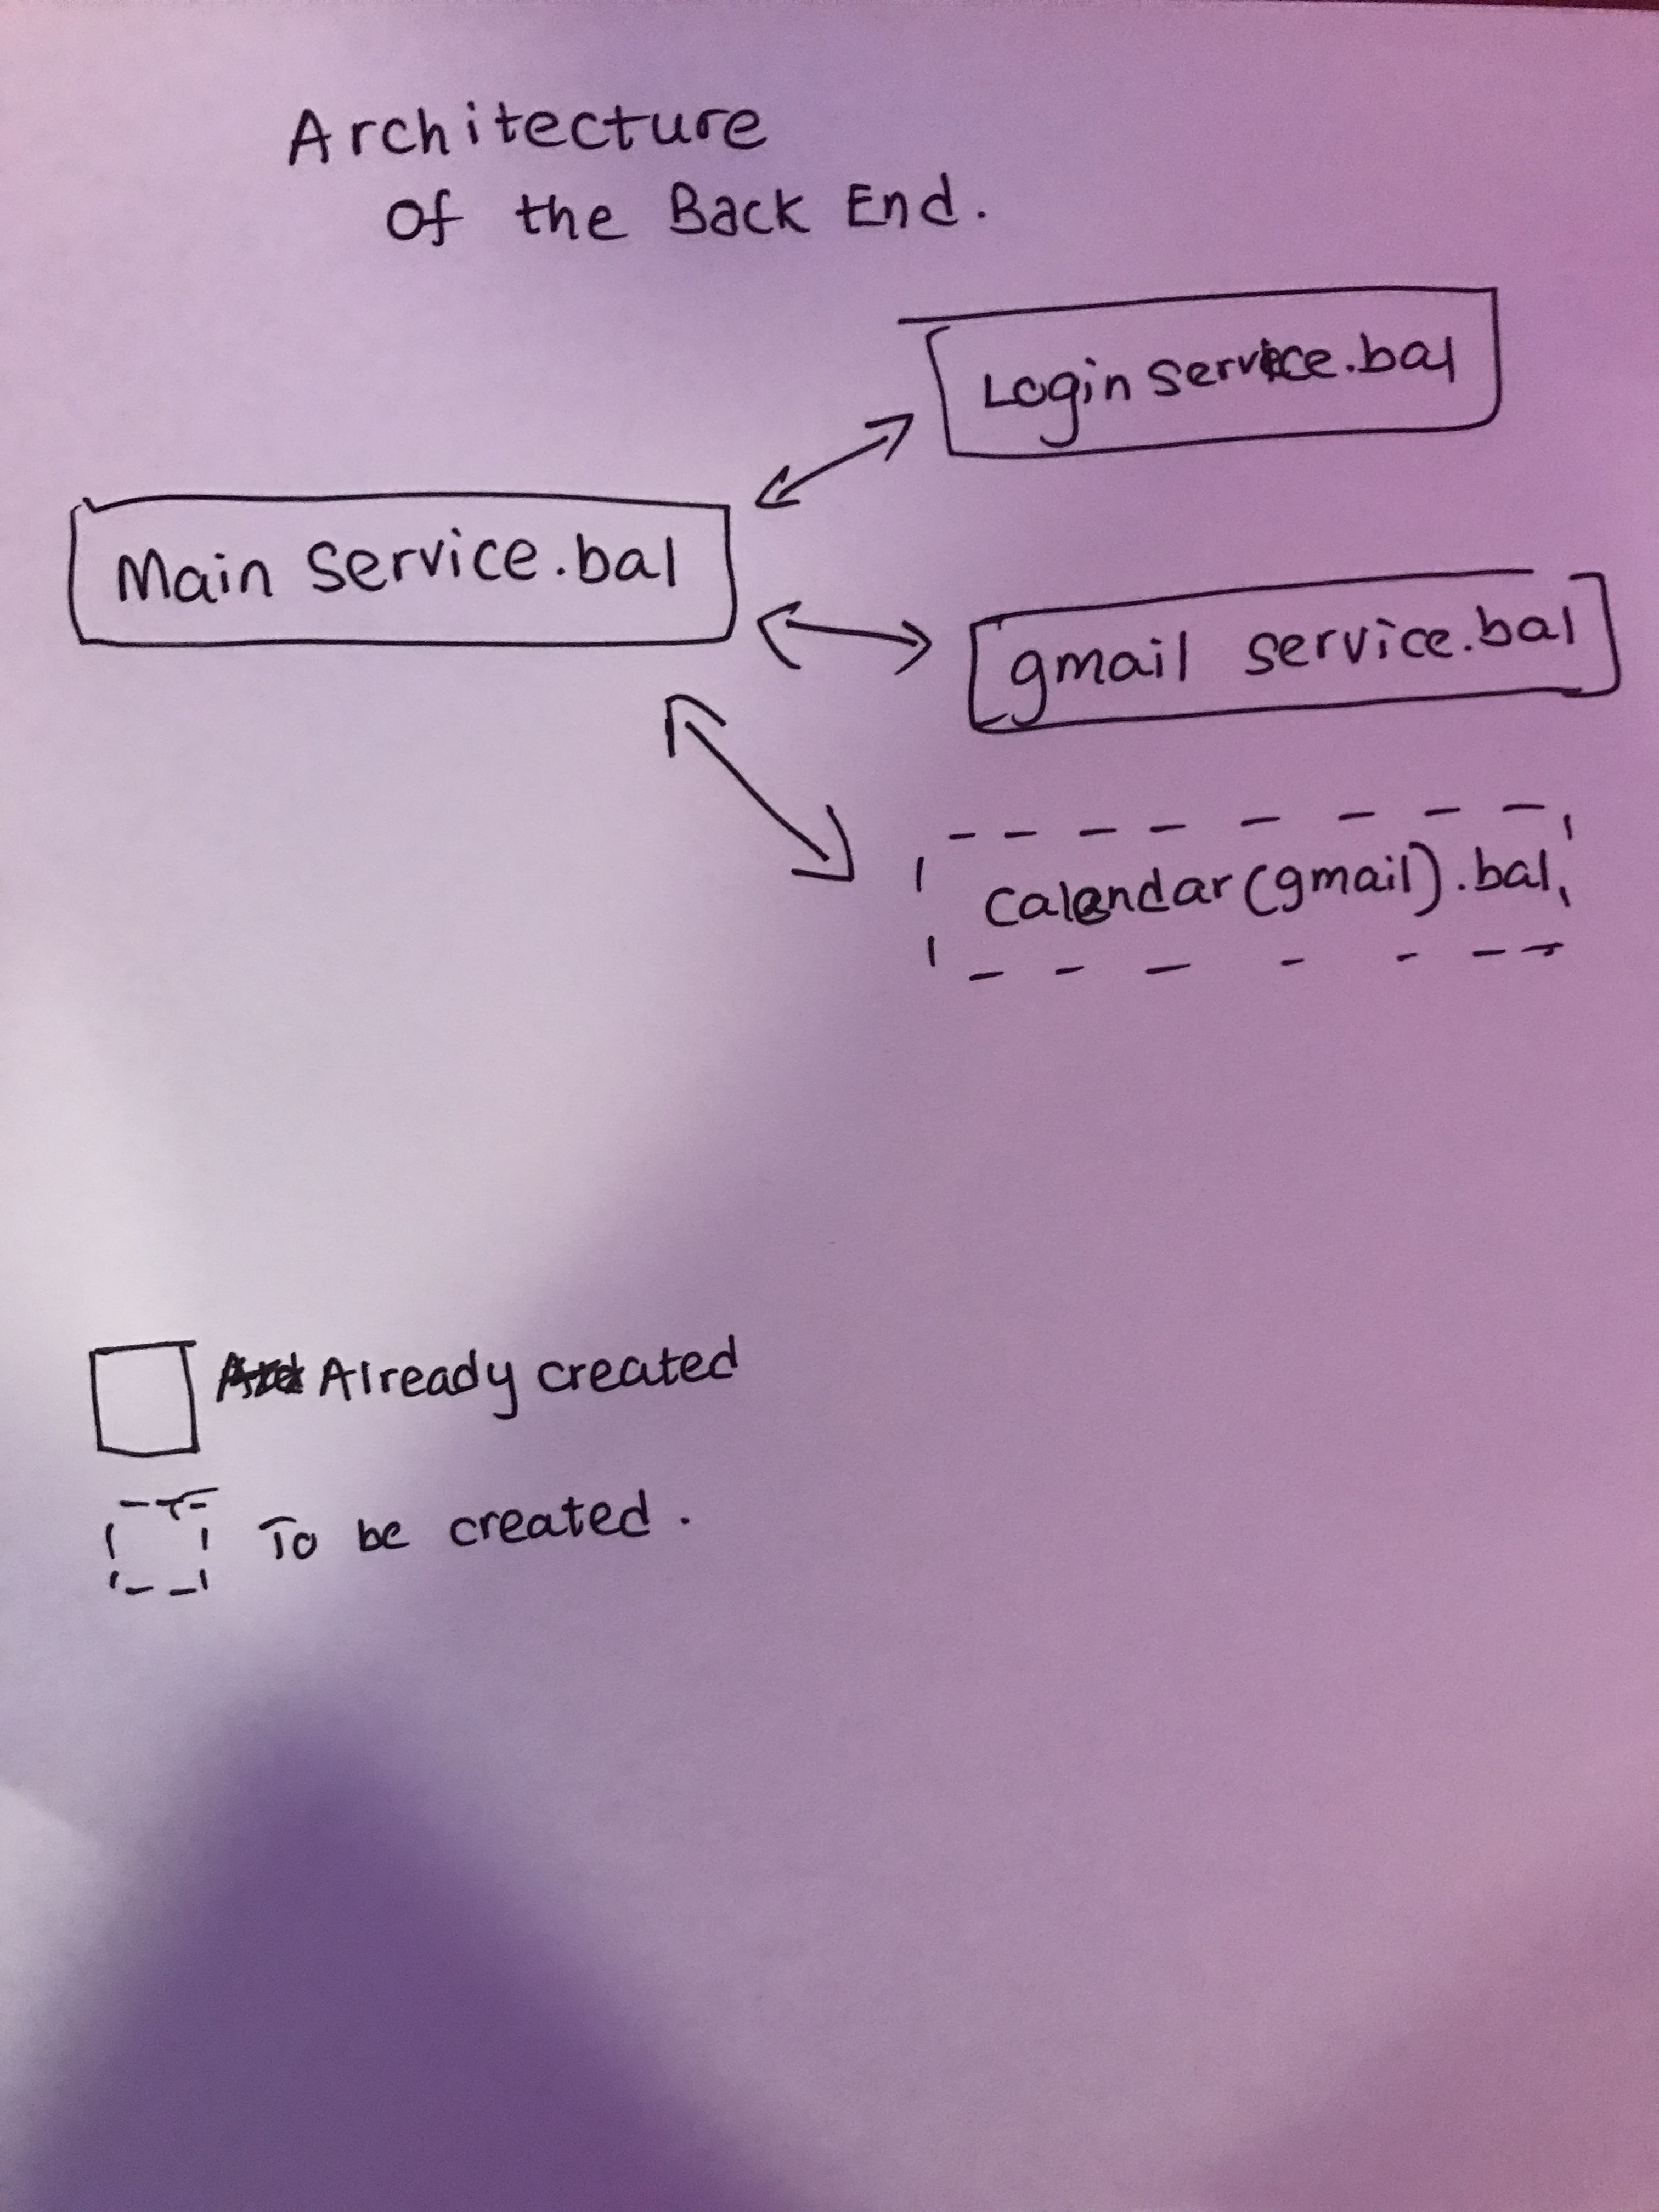 Architecture
Of the Back End.
Login service.bal
Main service.bal
gmail service.bal
calendar(gmail).bal
Already created
To be created.